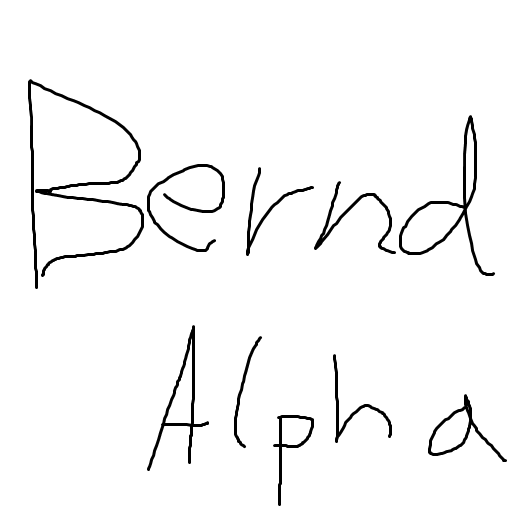 Bernd
Alpha